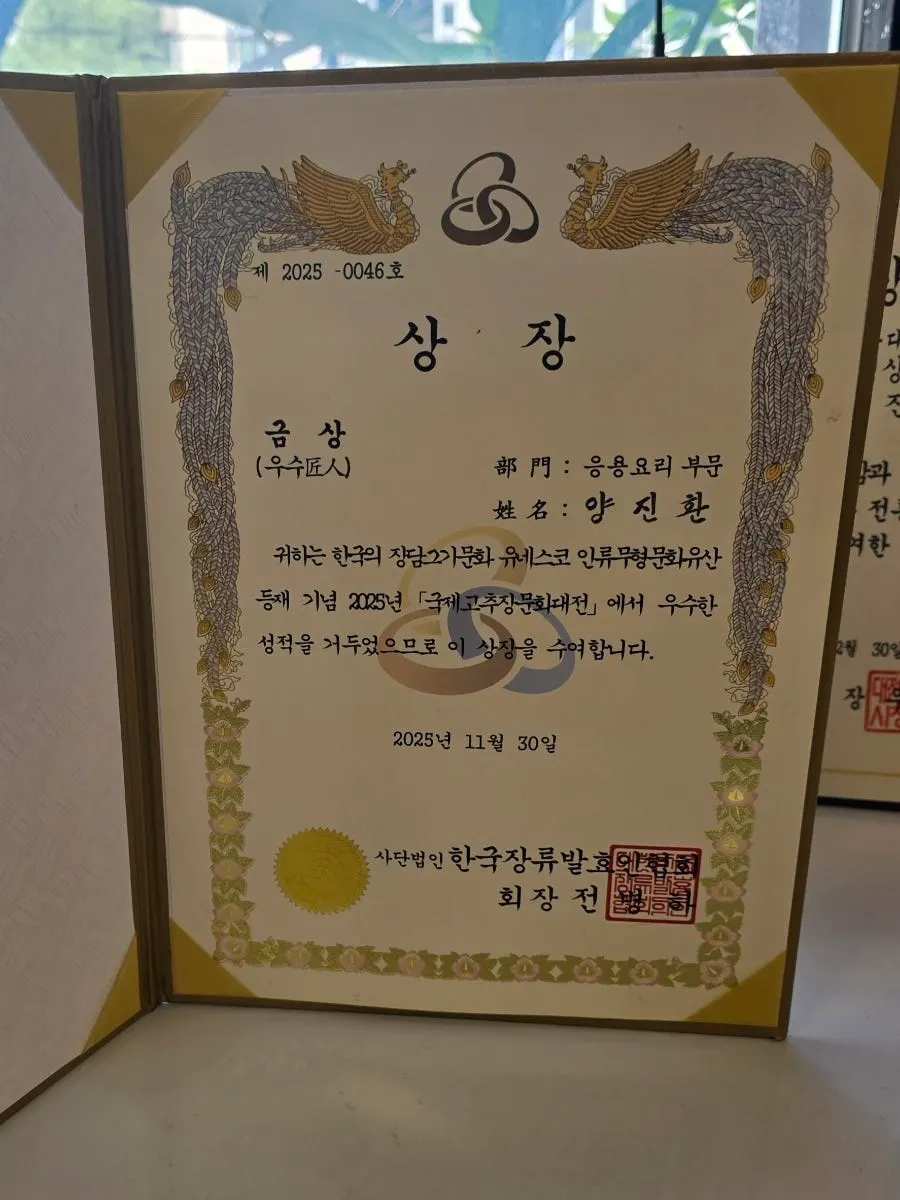 제 2025 -0046호
상 장
금 상
(우수匠人)
部 門 : 응용요리 부문
姓 名 : 양 진 환
귀하는 한국의 장담그기문화 유네스코 인류무형문화유산
등재 기념 2025년 「국제고추장문화대전」에서 우수한
성적을 거두었으므로 이 상장을 수여합니다.
2025년 11월 30일
사단법인 한국장류발효인협회
회 장 전
하
과
전
여한
2월 30일
장